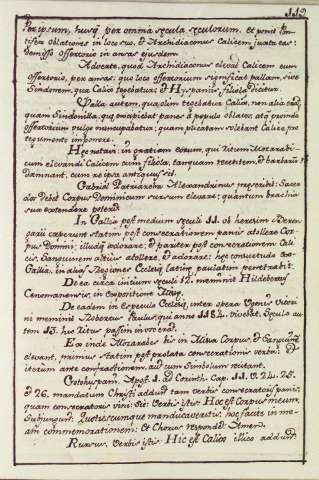 112
Per ipsum, husq; per omnia sæcula sæculorum, et ponit Pon-
tifex oblationes in loco suo, et Archidiaconus Calicem juxta eas:
demisso offertorio in ansas ejusdem.
Adverte, quod Archidiaconus elevat Calicem cum
offertorio, per ansas: quo loco offertorium significat pallam, sive
Sindonem, qua Calix tegebatur; et Hyspanis, filiola dicitur.
Palla autem, qua olim tegebatur Calix, non alia erat,
quam Sindonilla, quæ excipiebat panes à populo oblatos, atq; proinde
offertorium vulgo nuncupabatur; quam plicatam solebant Calici, pro
tegumento imponere.
Hæc notavi in gratiam eorum, qui Ritum Mozarabi-
cum elevandi Calicem cum filiola, tanquam recentem, et barbarum
damnant, cum re ipsa antiquus sit.
Gabriel Patriarcha Alexandrinus præscribit: Sacer-
dos debet Corpus Dominicum sursum elevare: quantum brachia
sua extendere poterit.
In Gallia post medium sæculi 11. ob hæresim Beren-
garii cæperunt statim post consecrationem panis attollere Cor-
pus Domini; illudq; adorare; et pariter post consecrationem Cali-
cis, Sanguinem altius attollere, et adorare: hæc consuetudo ex
Gallia, in alias Regiones Ecclesiæ Latinæ paulatim penetrabit.
De ea circa initium sæculi 12. meminit Hildebertus
Cenomanensis, in Compositione Missæ.
De eadem in Speculo Ecclesiæ, inter opera Hugonis Victori-
ni meminit Robertus Paulus, qui anno 1184. vivebat. Sæculo au-
tem 13. hic Ritus passim invocerat.
Ex inde Mozarabes bis in Missa Corpus, et Sanguinem
elevant, primus statim post prolata consecrationis verba: et
iterum ante confractionem, aut cum Simbolum recitant.
Gothi post Apost. 1. ad Corinth. Cap. 11. v. 24. 25.
et 26. mandatum Christi addunt tam verbis consecrationis panis,
quam consecrationis vini. Sic: Verbis istis Hoc est Corpus meum,
subjungunt. Quotiescumque manducaveritis, hoc facite in me-
am commemorationem: et Chorus respondet Amen.
Rursus, verbis istis Hic est Calix illico addunt.